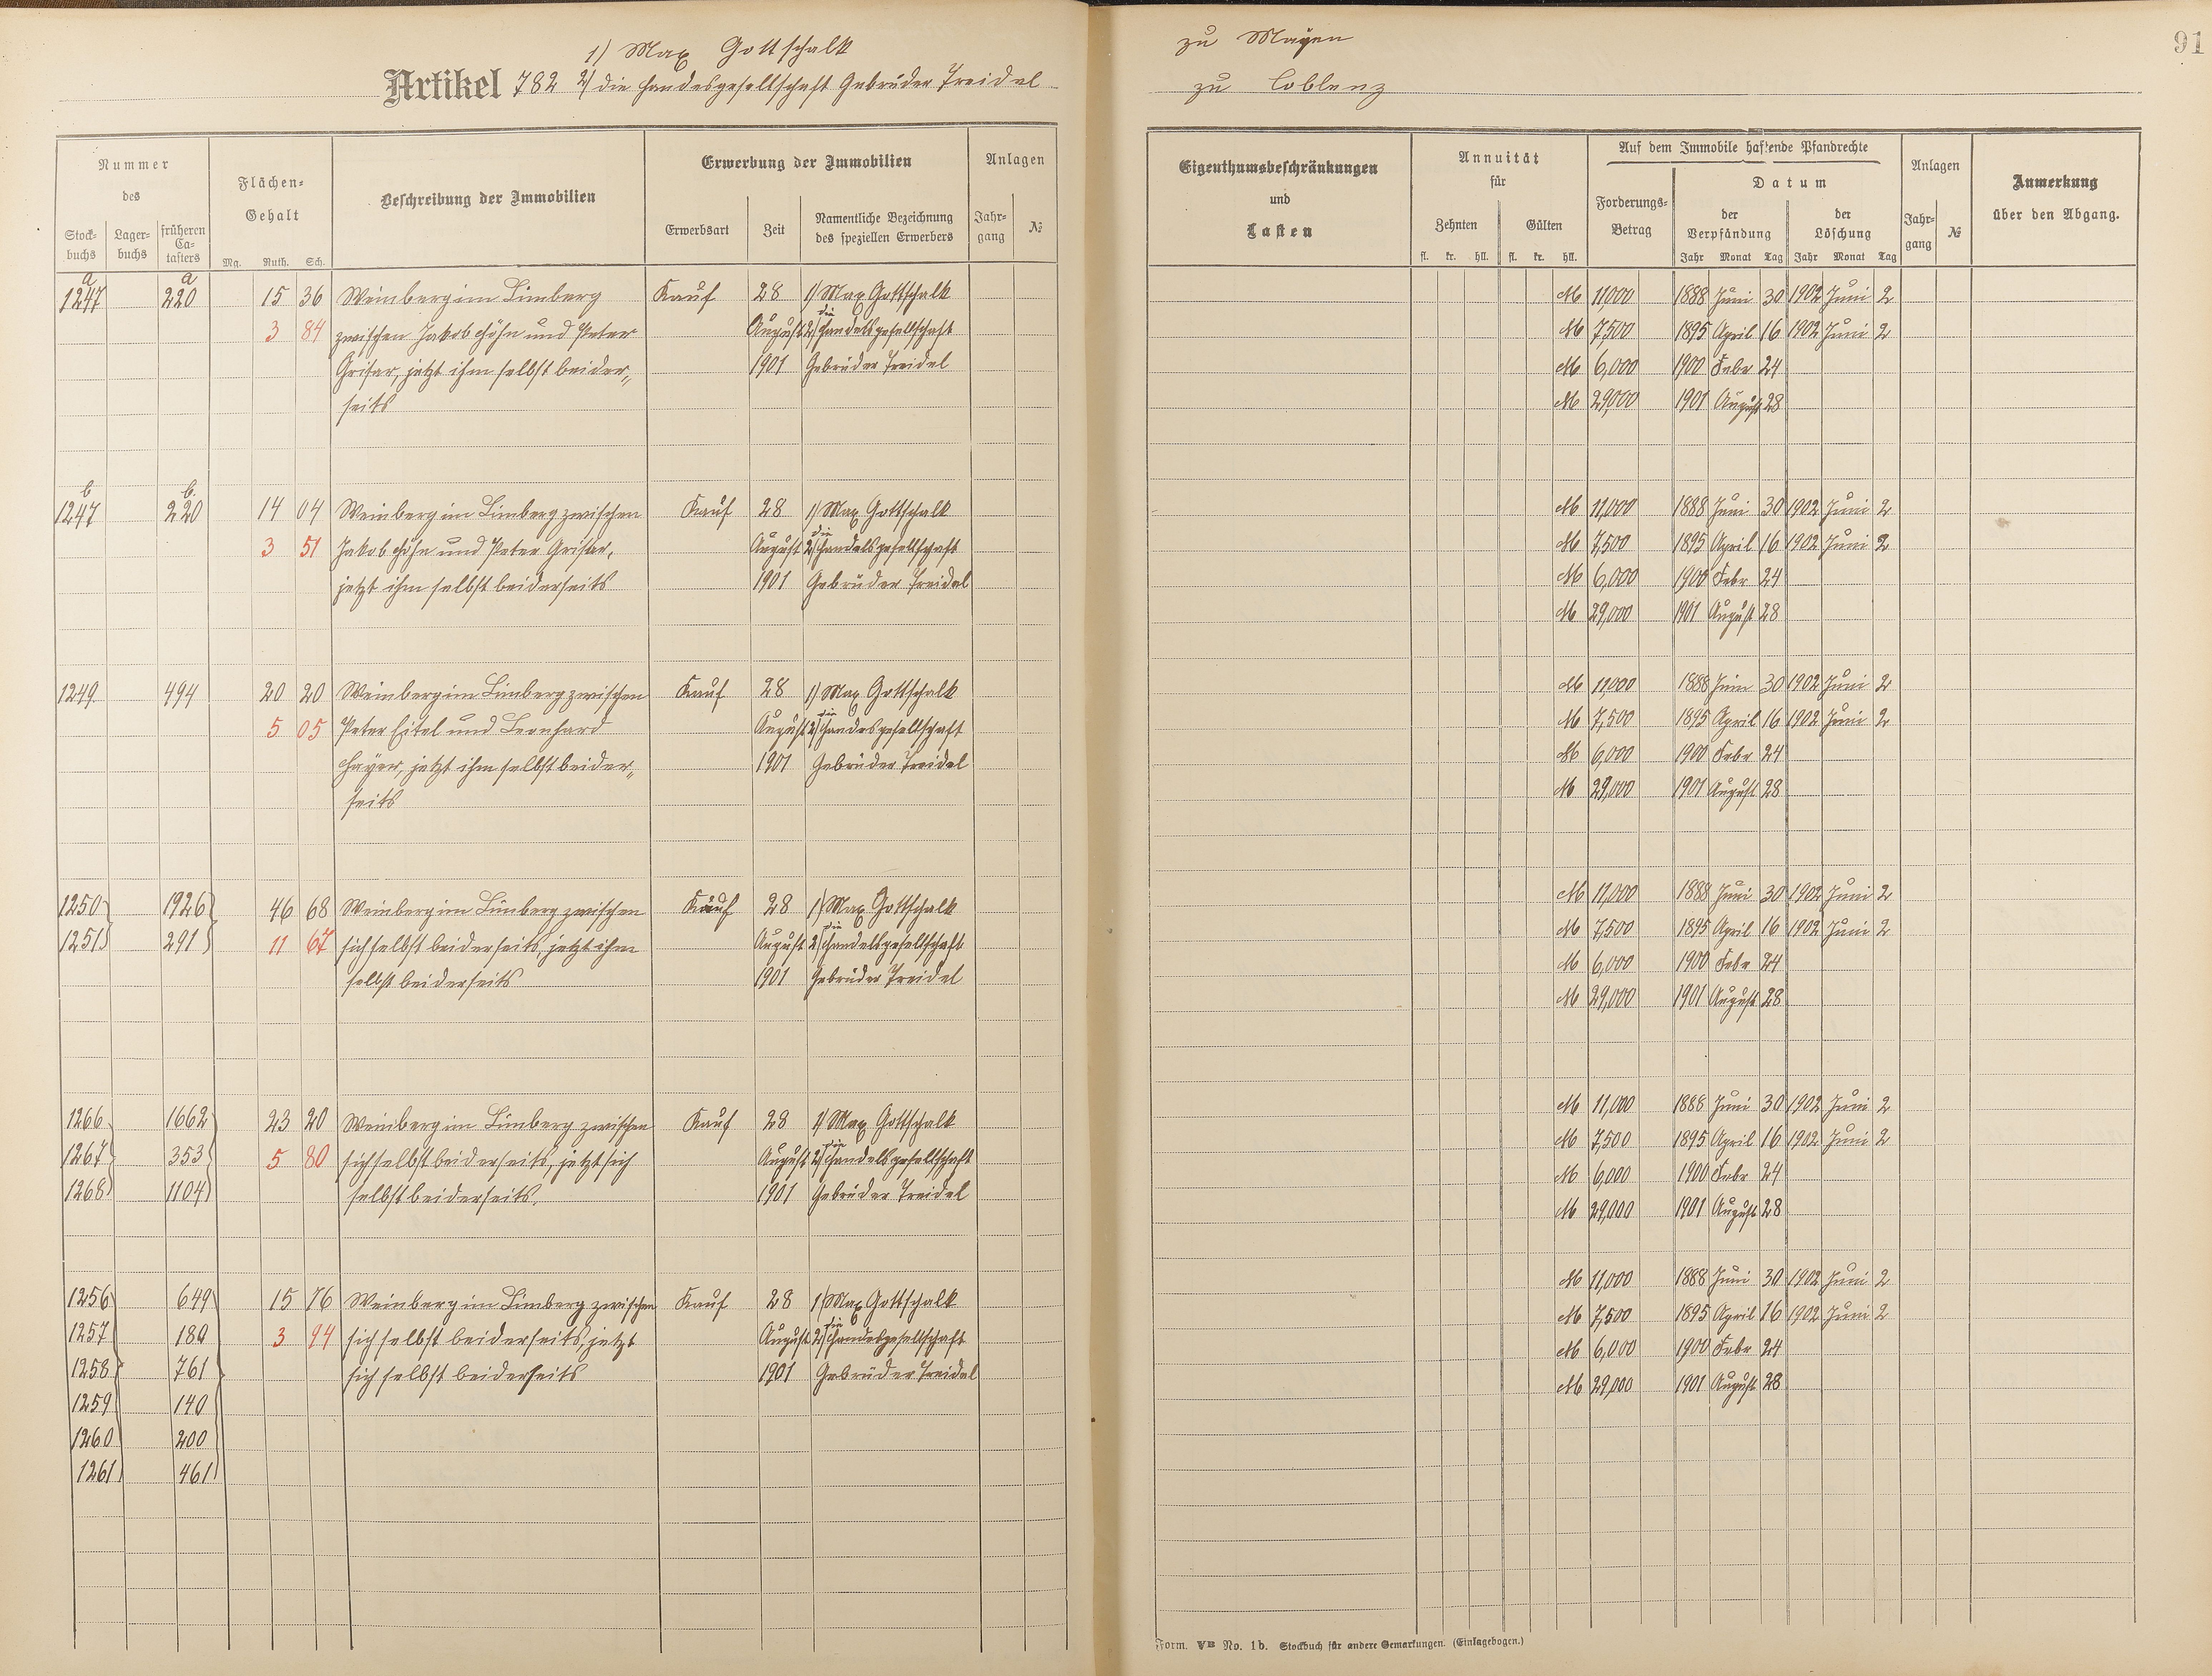 1) Max Gottschalk zu Mayen
91
Artikel 782 2) die Handesgesellschaft Gebrüder Treidel zu Coblenz
Nummer
des
Stock-
buchs
Lager-
buchs
früheren
Ca-
tasters
Flächen-
Gehalt
Mg. Ruth. Sch.
Beschreibung der Immobilien
Erwerbung der Immobilien
Erwerbsart
Zeit
Namentliche Bezeichnung
des speziellen Erwerbers
Anlagen
Jahr-
gang
№
Eigenthumsbeschränkungen
und
Lasten
Annuität
für
Zehnten
Gülten
fl. kr. hll. fl. kr. hll.
Auf dem Immobile haftende Pfandrechte
Forderungs-
Betrag
Datum
der
Verpfändung
der
Löschung
Jahr Monat Tag Jahr Monat Tag
Anlagen
Jahr-
gang
№
Anmerkung
über den Abgang.
a a
1247 220 15 36 Weinberg im Limberg Kauf 28 1) Max Gottschalk M 11,000 1888 Juni 30 1902 Juni 2
die
3 84 zwischen Jakob Höhn und Peter August 2) Handelsgesellschaft M 7,500 1895 April 16 1902 Juni 2
Grisar, jetzt ihm selbst beider„ 1901 Gebrüder Treidel M 6,000 1900 Febr 24
seits M 29,000 1901 August 28
b b.
1247 220 14 04 Weinberg im Limberg zwischen Kauf 28 1) Max Gottschalk M 11,000 1888 Juni 30 1902 Juni 2
die
3 51 Jakob Höhn und Peter Grisar, August 2) Handelsgesellschaft M 7,500 1895 April 16 1902 Juni 2
jetzt ihm selbst beiderseits 1901 Gebrüder Treidel M 6,000 1900 Febr 24
M 29,000 1901 August 28
1249. 494 20 20 Weinberg im Limberg zwischen Kauf 28 1) Max Gottschalk M 11,000 1888 Juni 30 1902 Juni 2
die
5 05 Peter Eitel und Leonhard August 2) Handesgesellschaft M 7,500 1895 April 16 1902 Juni 2
Hayer, jetzt ihm selbst beider„ 1901 Gebrüder Treidel M 6,000 1900 Febr 24
seits M 29,000 1901 August 28
1250 1926 46 68 Weinberg im Limberg zwischen Kauf 28 1) Max Gottschalk M 11,000 1888 Juni 30 1902 Juni 2
die
1251 291 11 67 sich selbst beiderseits, jetzt ihm August 2) Handelsgesellschaft M 7,500 1895 April 16 1902 Juni 2
selbst beiderseits 1901 Gebrüder Treidel M 6,000 1900 Febr 24
M 29,000 1901 August 28
1266 1662 23 20 Weinberg im Limberg zwischen Kauf 28 1) Max Gottschalk M 11,000 1888 Juni 30 1902 Juni 2
die
1267 353 5 80 sich selbst beiderseits, jetzt sich August 2) Handelsgesellschaft M 7,500 1895 April 16 1902 Juni 2
1268 1104 selbst beiderseits. 1901 Gebrüder Treidel M 6,000 1900 Febr 24
M 29,000 1901 August 28
1256 649 15 76 Weinberg im Limberg zwischen Kauf 28 1) Max Gottschalk M 11,000 1888 Juni 30 1902 Juni 2
die
1257 180 3 94 sich selbst beiderseits, jetzt August 2) Handesgesellschaft M 7,500 1895 April 16 1902 Juni 2
1258 761 sich selbst beiderseits 1901 Gebrüder Treidel M 6,000 1900 Febr 24
1259 140 M 29,000 1901 August 28
1260 200
1261 461
Form. VB No. 1b. Stockbuch für andere Gemarkungen. (Einlagebogen.)